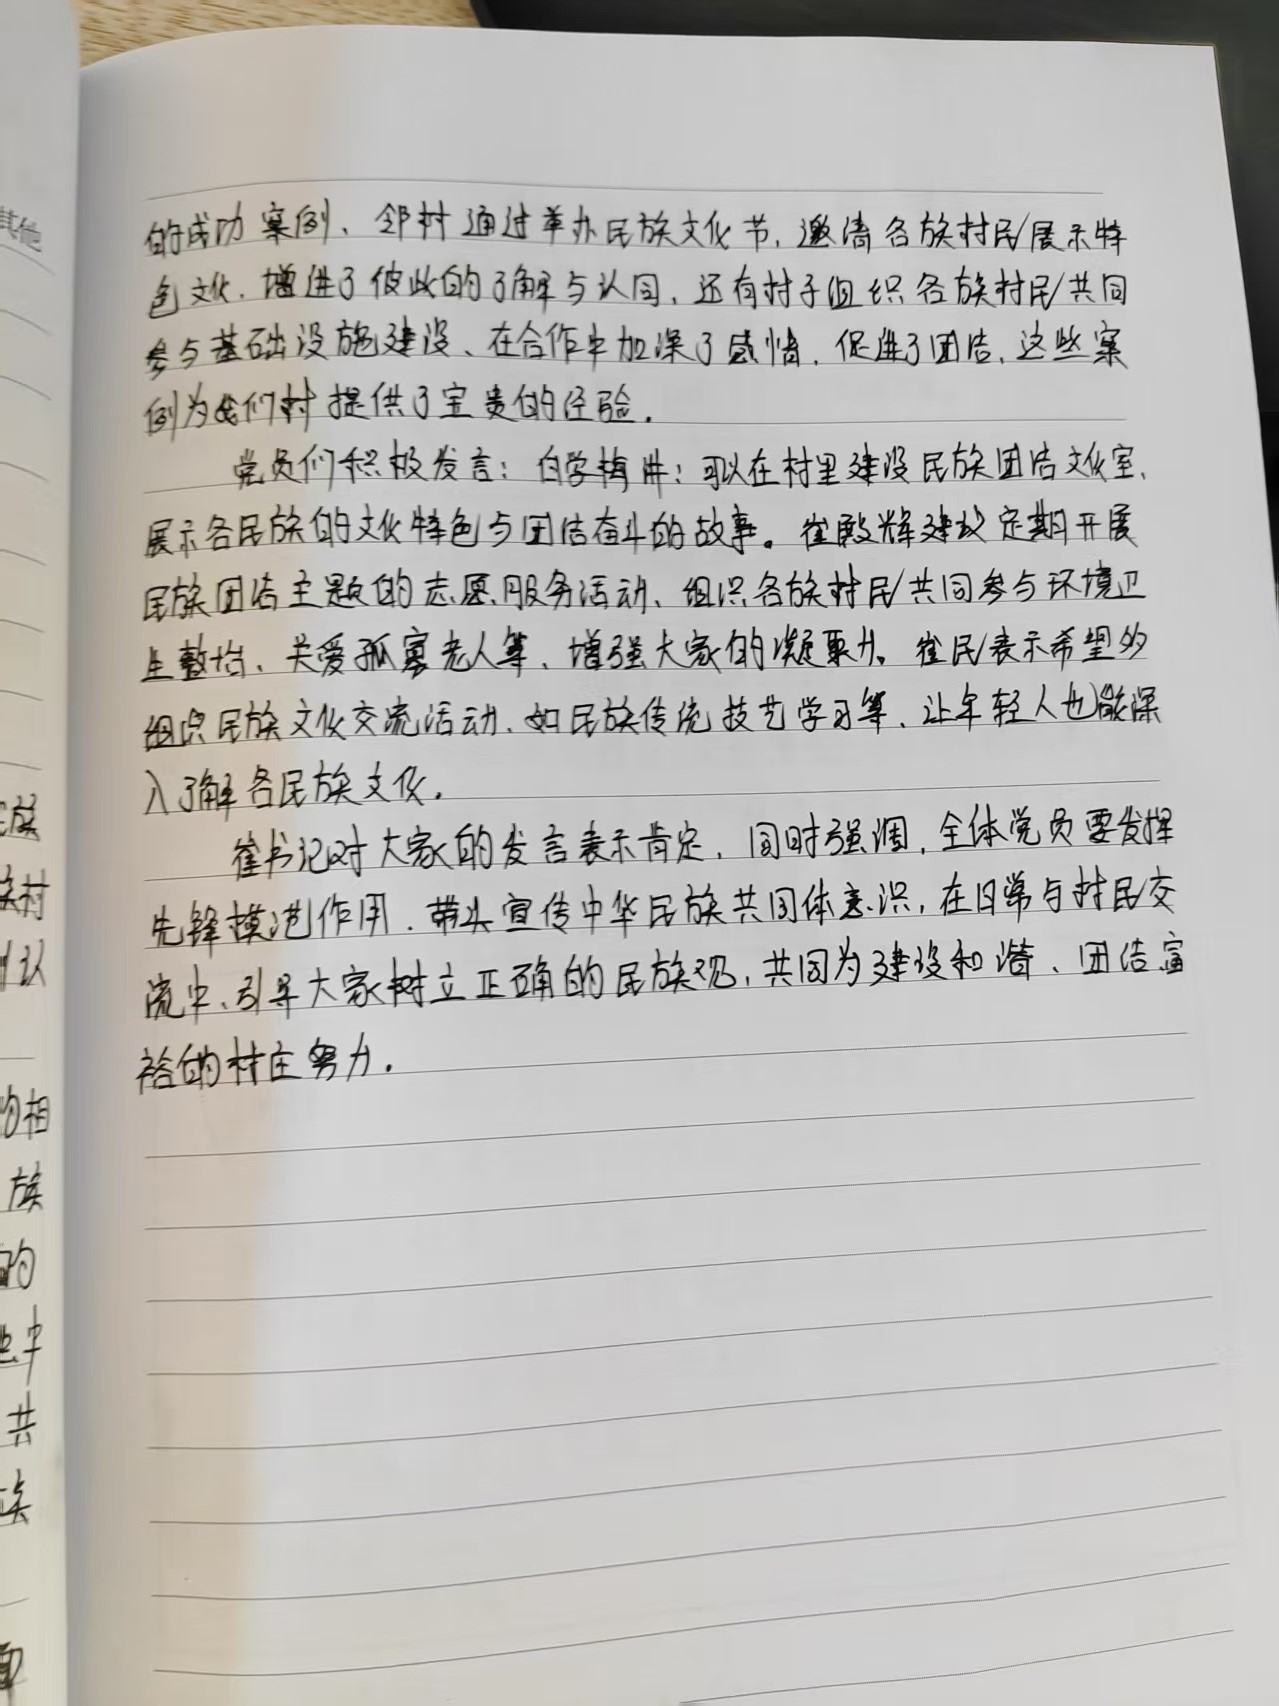 其他
的成功案例、邻村通过举办民族文化节,邀请各族村民展示特
色文化,增进了彼此的了解与认同,还有村子组织各族村民共同
参与基础设施建设、在合作中加深了感情,促进了团结,这些案
例为我们村提供了宝贵的经验.
党员们积极发言:白学梅讲:可以在村里建设民族团结文化室,
展示各民族的文化特色与团结奋斗的故事。崔殿辉建议定期开展
民族团结主题的志愿服务活动、组织各族村民共同参与环境卫
生整治、关爱孤寡老人等、增强大家的凝聚力。崔民表示希望多
组织民族文化交流活动、如民族传统技艺学习等、让年轻人也能深
入了解各民族文化.
崔书记对大家的发言表示肯定,同时强调,全体党员要发挥
先锋模范作用.带头宣传中华民族共同体意识,在日常与村民交
流中、引导大家树立正确的民族观,共同为建设和谐、团结富
裕的村庄努力.
族
村
认
相
族
的
中
共
族